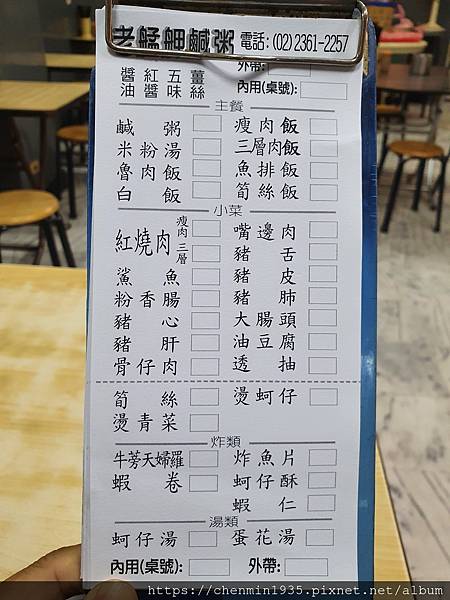 老艋舺鹹粥 電話:(02)2361-2257
外帶:
醬 紅 五 薑
油 醬 味 絲
內用(桌號):
主餐
鹹粥 瘦肉飯
米粉湯 三層肉飯
魯肉飯 魚排飯
白飯 筍絲飯
小菜
紅燒肉 瘦肉 嘴邊肉
三層 豬舌
鯊魚 豬皮
粉香腸 豬肺
豬心 大腸頭
豬肝 油豆腐
骨仔肉 透抽
筍絲 燙蚵仔
燙青菜
炸類
牛蒡天婦羅 炸魚片
蝦卷 蚵仔酥
蝦仁
湯類
蚵仔湯 蛋花湯
內用(桌號): 外帶:
https://chenmin1935.pixnet.net/album